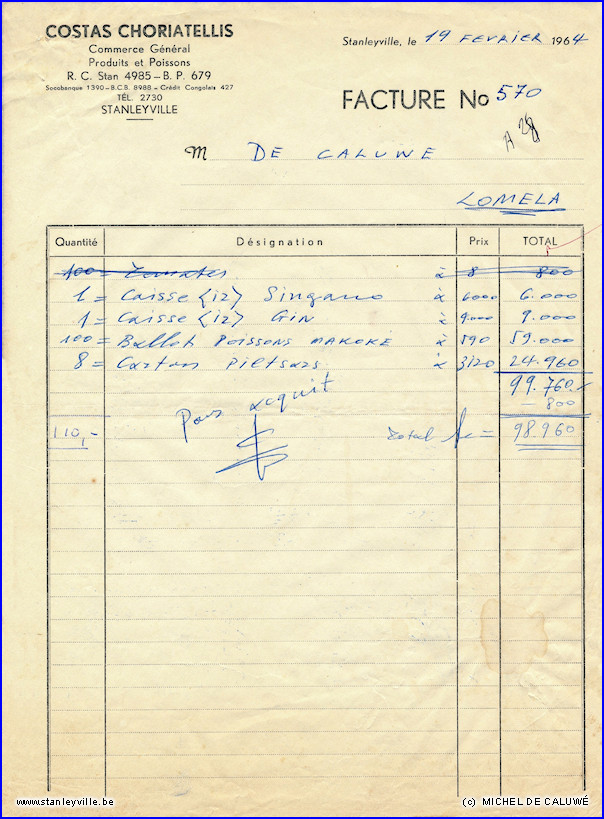 COSTAS CHORIATELLIS
Commerce Général
Produits et Poissons
R. C. Stan 4985 – B. P. 679
Socobanque 1390 – B.C.B. 8988 – Crédit Congolais 427
TÉL. 2730
STANLEYVILLE
Stanleyville, le 19 FEVRIER 1964
FACTURE No 570
A 28
M DE CALUWE
LOMELA
Quantité Désignation Prix TOTAL
100 = Tomates à 8 800
1 = Caisse (12) Singano à 6000 6.000
1 = Caisse (12) Gin à 9.000 9.000
100 = Ballot POISSONS MAKOKE à 590 59.000
8 = Carton Piltsars à 3120 24.960
99.760
- 800
Pour acquit
110,- Total Fc = 98.960
www.stanleyville.be
(c) MICHEL DE CALUWÉ